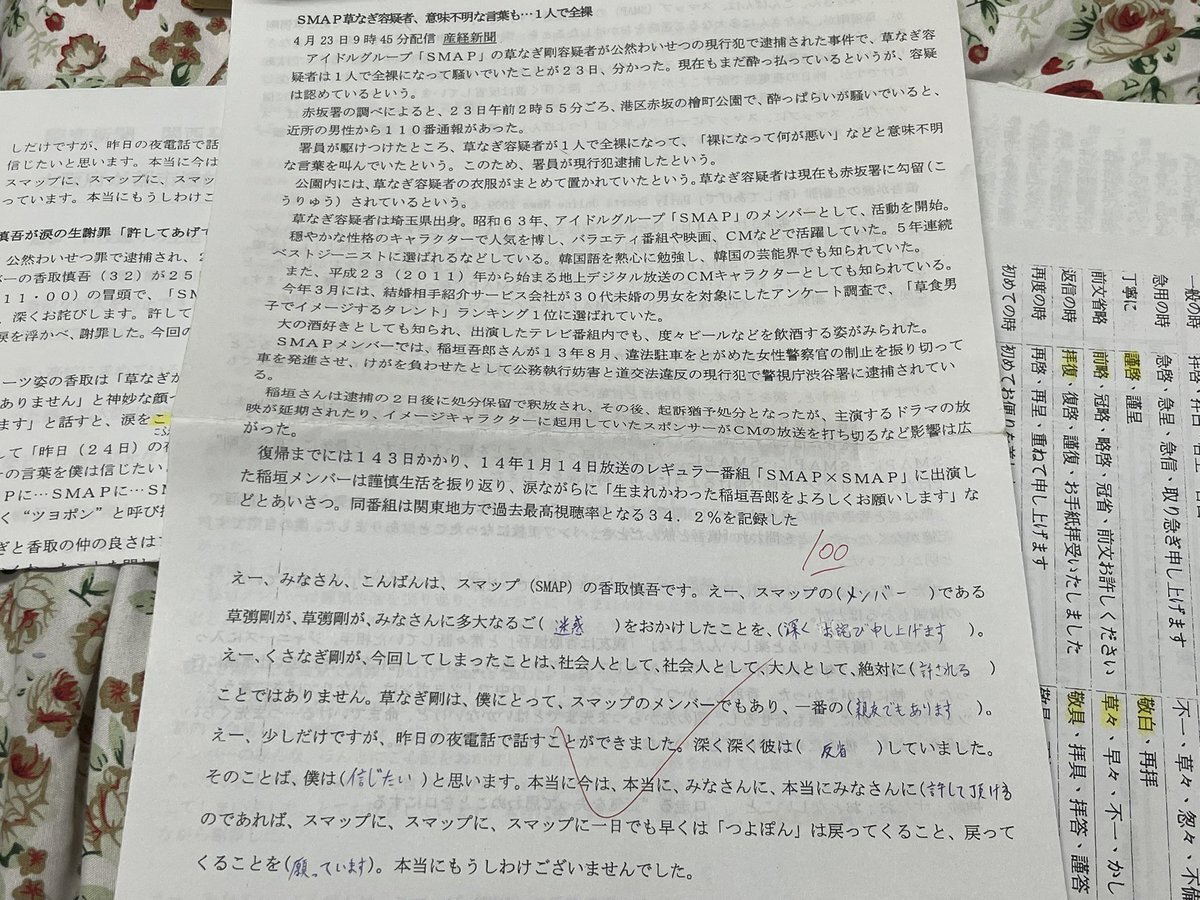 SMAP草なぎ容疑者、意味不明な言葉も…1人で全裸
4月23日9時45分配信 産経新聞
アイドルグループ「SMAP」の草なぎ剛容疑者が公然わいせつの現行犯で逮捕された事件で、草なぎ容
疑者は1人で全裸になって騒いでいたことが23日、分かった。現在もまだ酔っ払っているというが、容疑
は認めているという。
赤坂署の調べによると、23日午前2時55分ごろ、港区赤坂の檜町公園で、酔っぱらいが騒いでいると、
近所の男性から110番通報があった。
署員が駆けつけたところ、草なぎ容疑者が1人で全裸になって、「裸になって何が悪い」などと意味不明
な言葉を叫んでいたという。このため、署員が現行犯逮捕したという。
公園内には、草なぎ容疑者の衣服がまとめて置かれていたという。草なぎ容疑者は現在も赤坂署に勾留(こ
うりゅう)されているという。
草なぎ容疑者は埼玉県出身。昭和63年、アイドルグループ「SMAP」のメンバーとして、活動を開始。
穏やかな性格のキャラクターで人気を博し、バラエティ番組や映画、CMなどで活躍していた。5年連続
ベストジーニストに選ばれるなどしている。韓国語を熱心に勉強し、韓国の芸能界でも知られていた。
また、平成23(2011)年から始まる地上デジタル放送のCMキャラクターとしても知られている。
今年3月には、結婚相手紹介サービス会社が30代未婚の男女を対象にしたアンケート調査で、「草食男
子でイメージするタレント」ランキング1位に選ばれていた。
大の酒好きとしても知られ、出演したテレビ番組内でも、度々ビールなどを飲酒する姿がみられた。
SMAPメンバーでは、稲垣吾郎さんが13年8月、違法駐車をとがめた女性警察官の制止を振り切って
車を発進させ、けがを負わせたとして公務執行妨害と道交法違反の現行犯で警視庁渋谷署に逮捕されてい
る。
稲垣さんは逮捕の2日後に処分保留で釈放され、その後、起訴猶予処分となったが、主演するドラマの放
映が延期されたり、イメージキャラクターに起用していたスポンサーがCMの放送を打ち切るなど影響は広
がった。
復帰までには143日かかり、14年1月14日放送のレギュラー番組「SMAP×SMAP」に出演し
た稲垣メンバーは謹慎生活を振り返り、涙ながらに「生まれかわった稲垣吾郎をよろしくお願いします」な
どとあいさつ。同番組は関東地方で過去最高視聴率となる34.2%を記録した
100
えー、みなさん、こんばんは、スマップ(SMAP)の香取慎吾です。えー、スマップの(メンバー)である
草彅剛が、草彅剛が、みなさんに多大なるご(迷惑)をおかけしたことを、(深くお詫び申し上げます)。
えー、くさなぎ剛が、今回してしまったことは、社会人として、社会人として、大人として、絶対に(許される)
ことではありません。草なぎ剛は、僕にとって、スマップのメンバーでもあり、一番の(親友でもあります)。
えー、少しだけですが、昨日の夜電話で話すことができました。深く深く彼は(反省)していました。
そのことば、僕は(信じたい)と思います。本当に今は、本当に、みなさんに、本当にみなさんに(許して頂ける)
のであれば、スマップに、スマップに、スマップに一日でも早くは「つよぽん」は戻ってくること、戻って
くることを(願っています)。本当にもうしわけございませんでした。
しだけですが、昨日の夜電話で話
信じたいと思います。本当に今は
スマップに、スマップに、スマッ
っています。本当にもうしわけご
慎吾が涙の生謝罪「許してあげて
公然わいせつ罪で逮捕され、2
バーの香取慎吾(32)が25
11・00)の冒頭で、「SM
、深くお詫びします。許して
涙を浮かべ、謝罪した。今回の
ーツ姿の香取は「草なぎが
ありません」と神妙な顔
ます」と話すと、涙をこ
して「昨日(24日)の夜
の言葉を僕は信じたい
Pに…SMAPに…SM
く"ツヨポン"と呼び
ぎと香取の仲の良さは
一般の時
急用の時 急啓、急呈、急信、取り急ぎ申し上げます
丁寧に 謹啓、謹呈
前文省略 前略、冠略、略啓、冠省、前文お許しください
返信の時 拝復、復啓、謹復、お手紙拝受いたしました
再度の時 再啓、再呈、重ねて申し上げます
初めての時 初めてお便り
不一、草々、怱々、不備
敬白、再拝
草々、早々、不一、かし
敬具、拝具、拝答、謹答